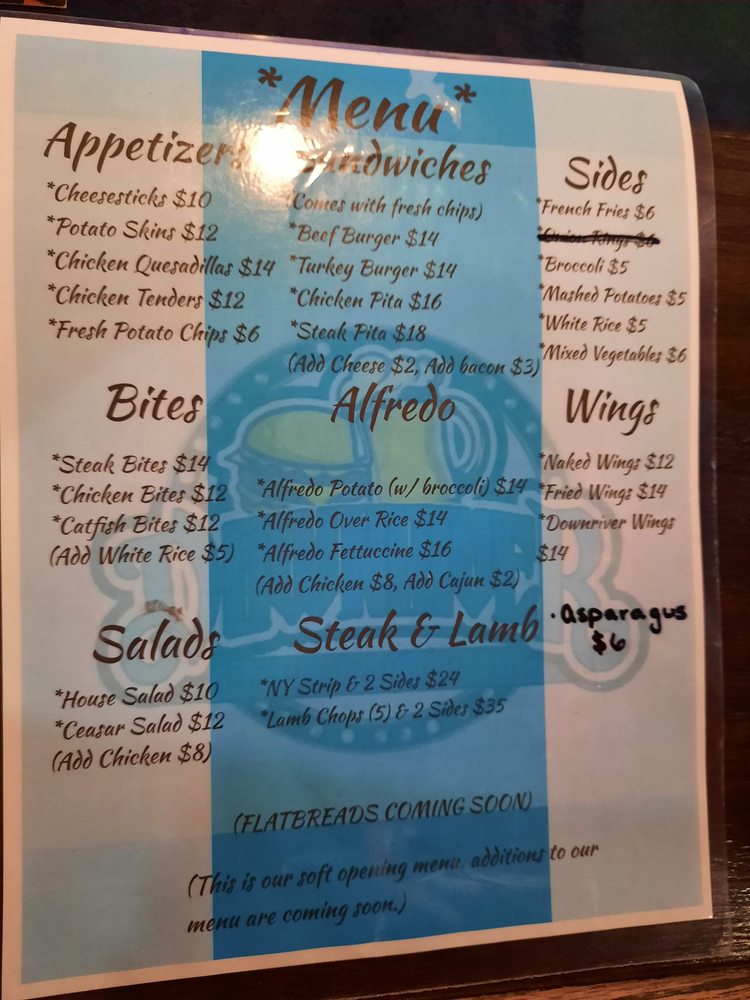 *Menu*
Appetizers
*Cheesesticks $10
*Potato Skins $12
*Chicken Quesadillas $14
*Chicken Tenders $12
*Fresh Potato Chips $6
Sandwiches
(Comes with fresh chips)
*Beef Burger $14
*Turkey Burger $14
*Chicken Pita $16
*Steak Pita $18
(Add Cheese $2, Add bacon $3)
Sides
*French Fries $6
*Onion Rings $6
*Broccoli $5
*Mashed Potatoes $5
*White Rice $5
*Mixed Vegetables $6
Bites
*Steak Bites $14
*Chicken Bites $12
*Catfish Bites $12
(Add White Rice $5)
Alfredo
*Alfredo Potato (w/ broccoli) $14
*Alfredo Over Rice $14
*Alfredo Fettuccine $16
(Add Chicken $8, Add Cajun $2)
Wings
*Naked Wings $12
*Fried Wings $14
*Downriver Wings
$14
· asparagus
$6
Salads
*House Salad $10
*Ceasar Salad $12
(Add Chicken $8)
Steak & Lamb
*NY Strip & 2 Sides $24
*Lamb Chops (5) & 2 Sides $35
(FLATBREADS COMING SOON)
(This is our soft opening menu. additions to our
menu are coming soon.)